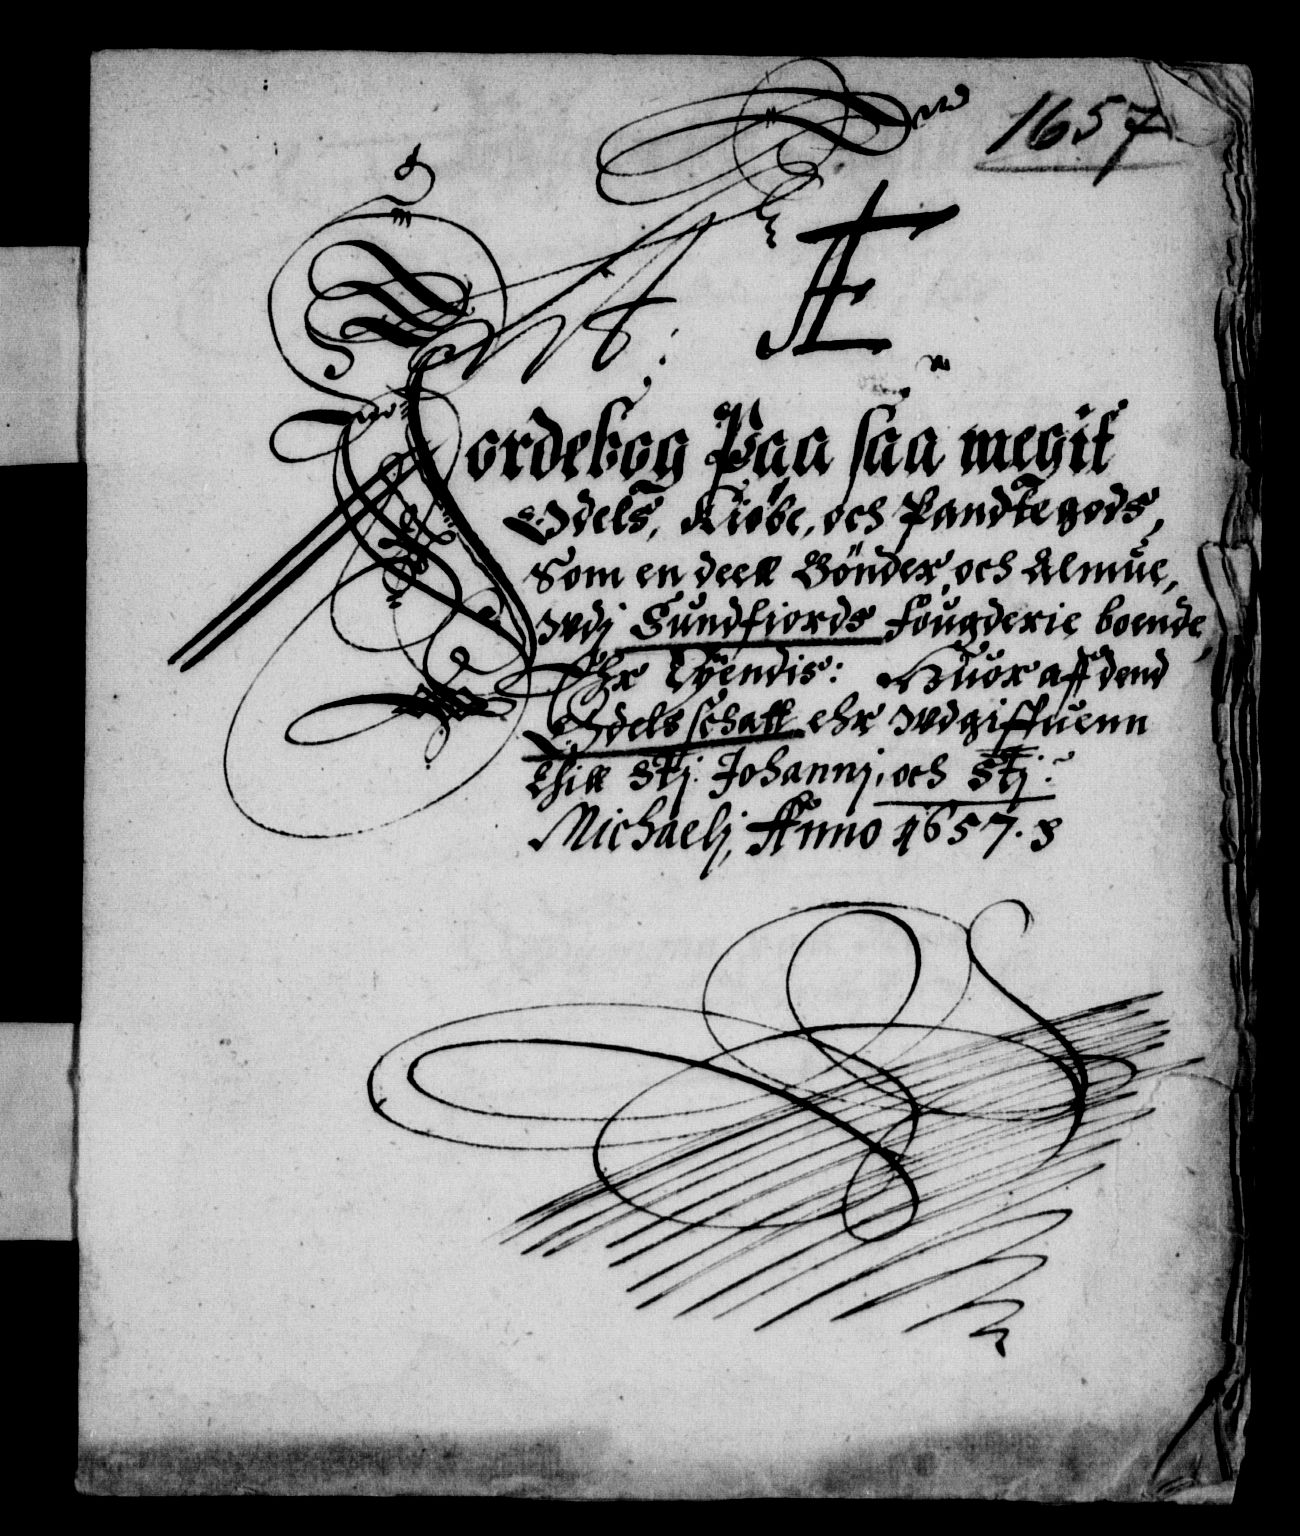 1657
N: Æ
Jordebog Paa saa megit
Odels, Kiøbe, och Pandtegods,
Som en deell Bönder, och Almue,
Wdj Sundfiords Fougderie boende,
Ehr Eÿendis: Huor aff dend
Odels schatt ehr Wdgiffuenn
thill Stj: Johannj, och Stj:
Michaelj, Anno 1657.